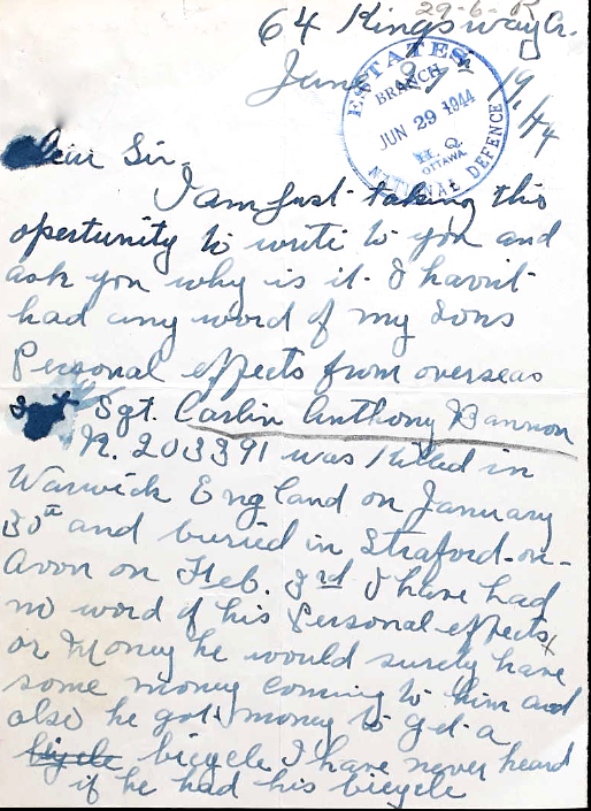 29-6-R
64 Kingsway Cr.
June 27th 19/44
ESTATES
BRANCH
JUN 29 1944
H.Q.
OTTAWA
NATIONAL DEFENCE
Dear Sir.
I am just taking this
opertunity to write to you and
ask you why is it. I havnt
had any word of my Sons
Personal effects from overseas
Sgt. Carlin Anthony Bannon
R. 203391 was Killed in
Warwick England on January
30th and buried in Straford-on-
Avon on Feb. 3rd I have had
no word of his Personal effects
or Money he would surely have
some money coming to him and
also he got money to get a
bicycle bicycle I have never heard
if he had his bicycle